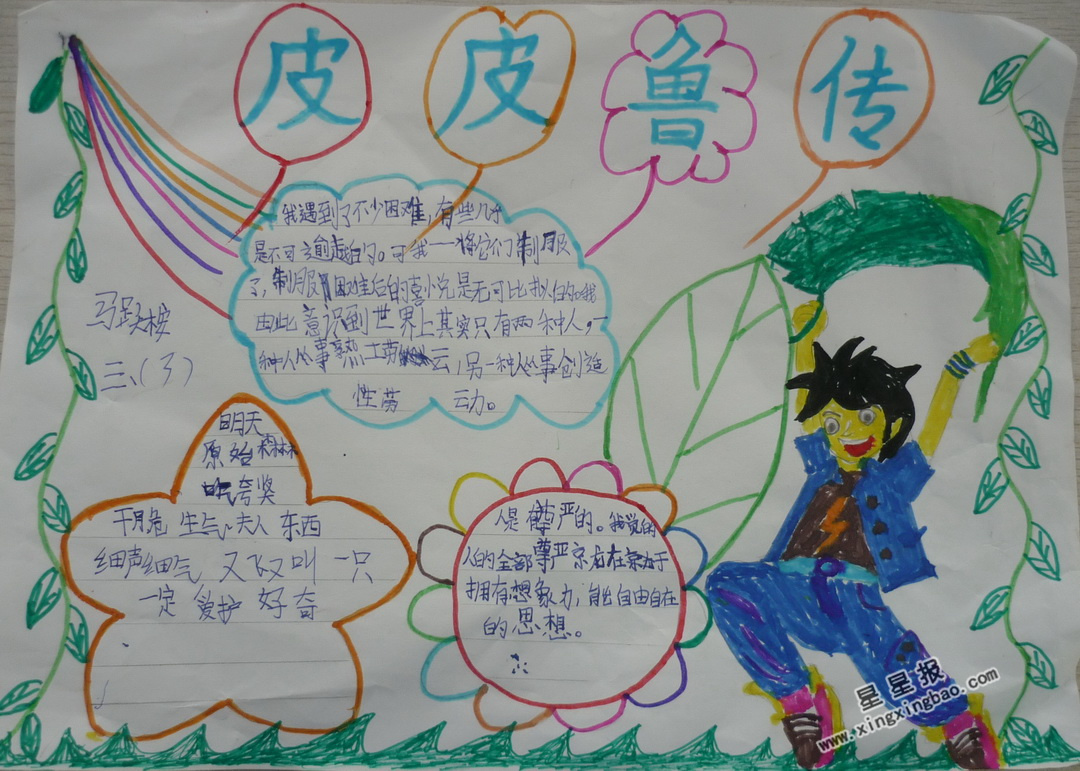 皮皮鲁传
我遇到了不少困难,有些几乎
是不可逾越的。可我一一将它们制服
了,制服困难后的喜悦是无可比拟的。我
由此意识到世界上其实只有两种人,一
种人从事熟土劳 云,另一种人从事创造
性劳 动。
马
三、(3)
明天
原始森林
夸奖
干危 生气 夫人 东西
细声细气 又 又叫 一只
一定 爱护 好奇
人是有尊严的。我觉的
人的全部尊严 在于
拥有想象力,能 自由自在
的思想。
星星报
www.xingxingbao.com